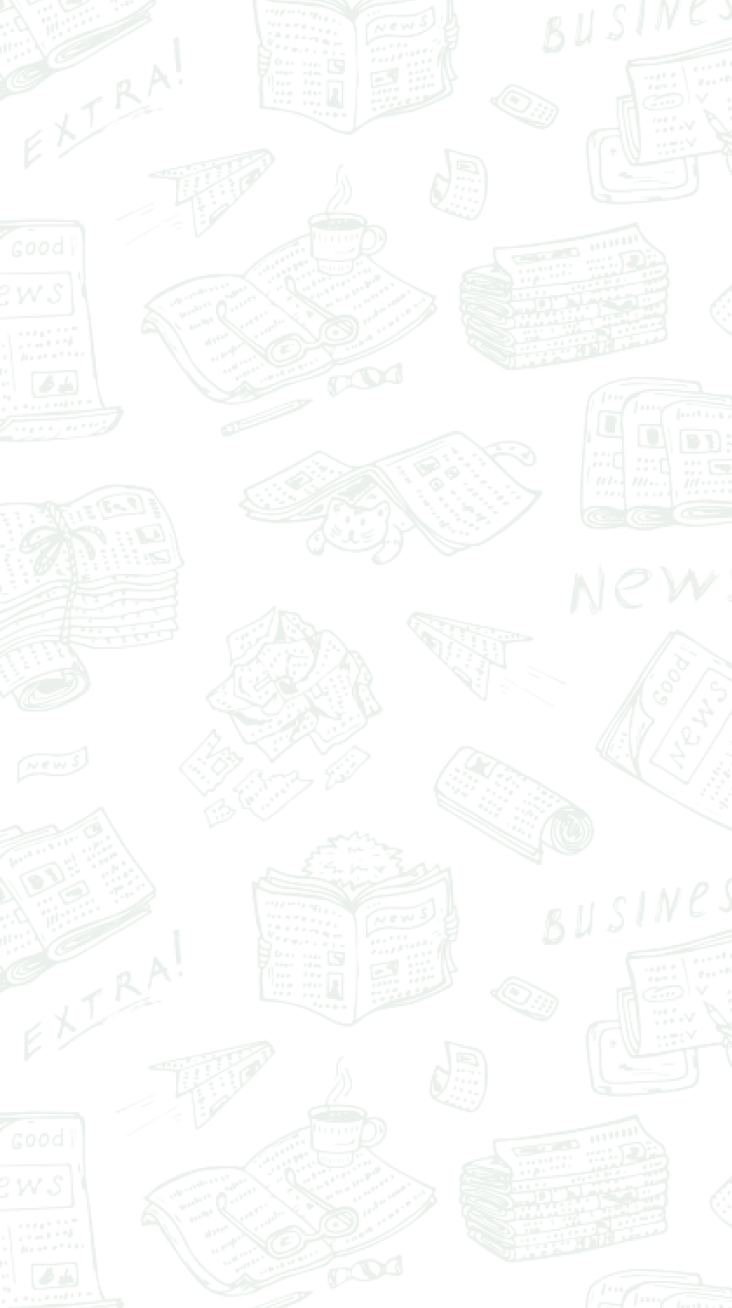 BUSINES
NEWS
EXTRA!
GOOD
EWS
NEWS
GOOD
NEWS
NEWS
NEWS
BUSINES
EXTRA!
GOOD
EWS